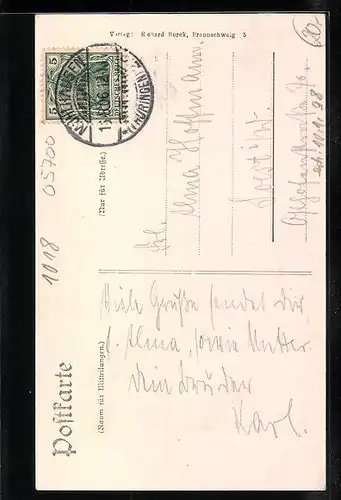 Verlag: Richard Borek, Braunschweig 5
20
5 5
MÜHLHAUSEN
(THÜRINGEN)
DEUTSCHES REICH
Postkarte
(Raum für Mitteilungen.)
(Nur für Adresse.)
Frl.
Alma Hoffmann
Viele Grüße sendet dir
l. Alma, sowie Mutter
Dein Bruder
Karl.
1018 05700